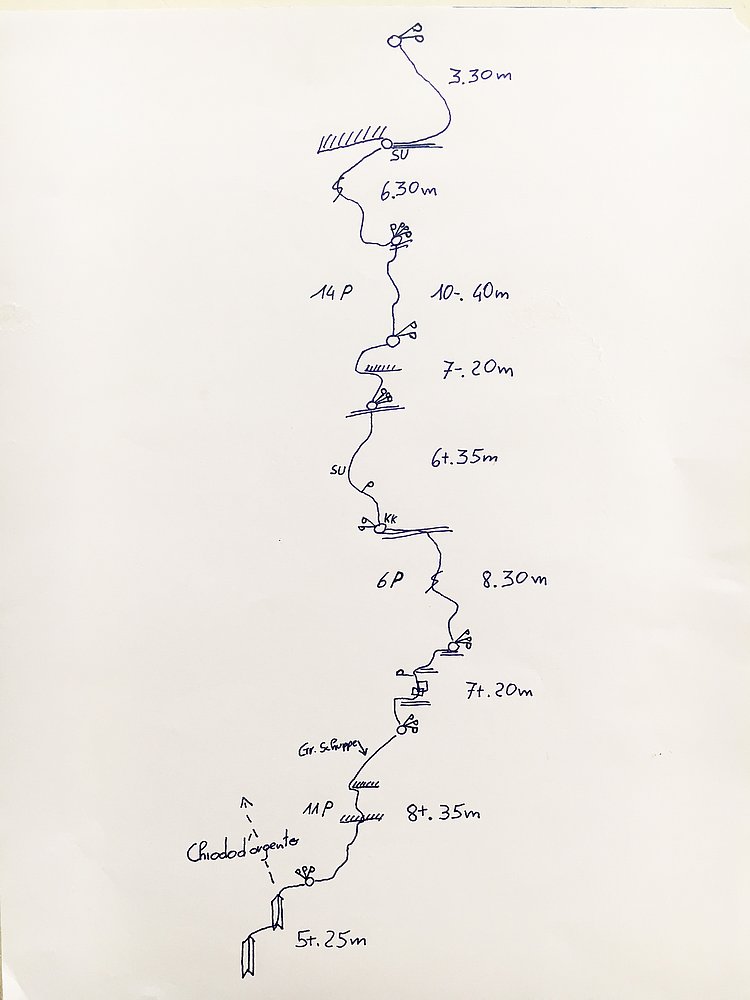 3.30m
SU
6.30m
14P
10-. 40m
7-. 20m
6+. 35m
SU
P
KK
6P
8.30m
P
7+. 20m
Gr. Schuppe
11P
8+. 35m
Chiodod'argento
5+. 25m